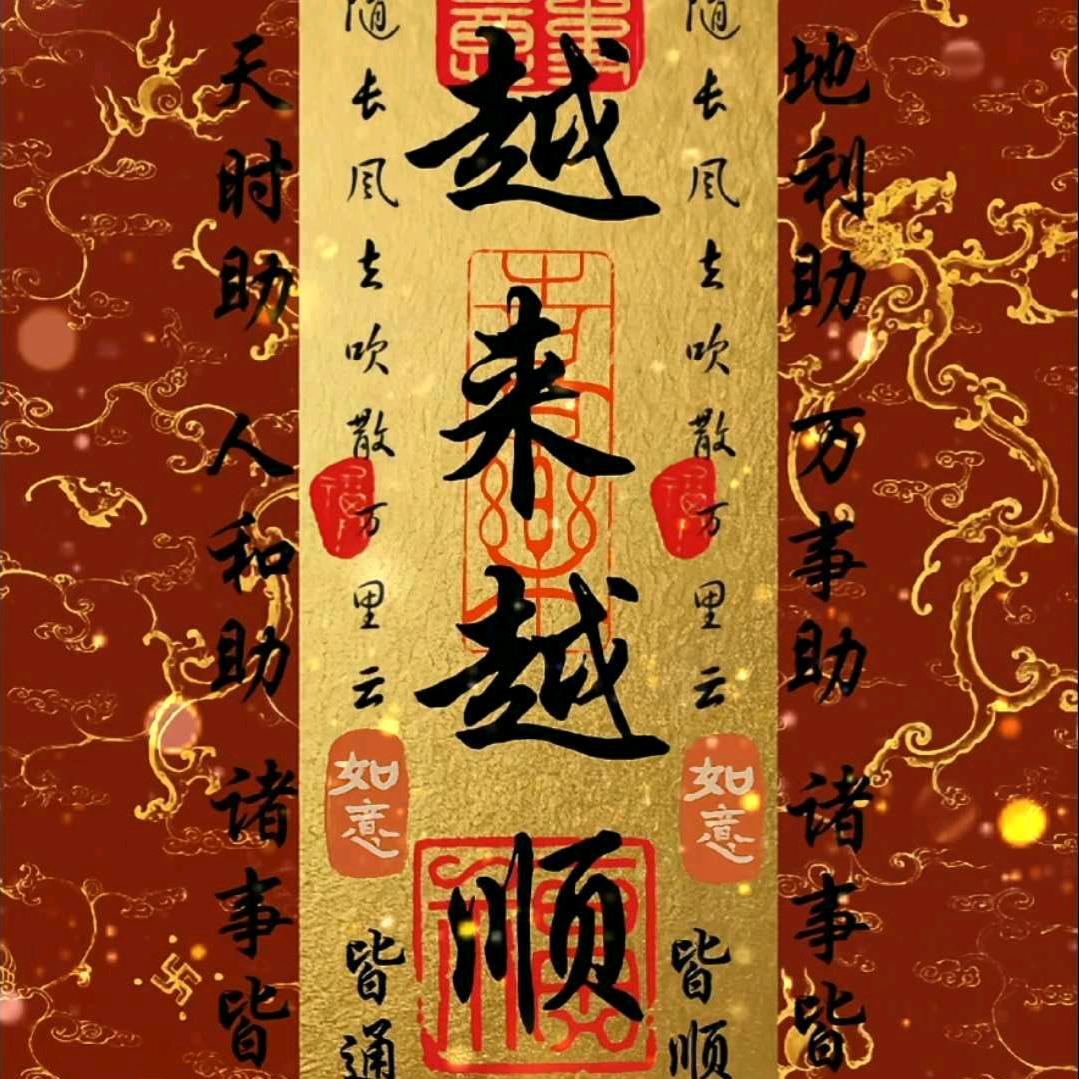 天时助 人和助 诸事皆
随长风去吹散万里云
如意
皆通
越来越顺
随长风去吹散万里云
如意
皆顺
地利助 万事助 诸事皆